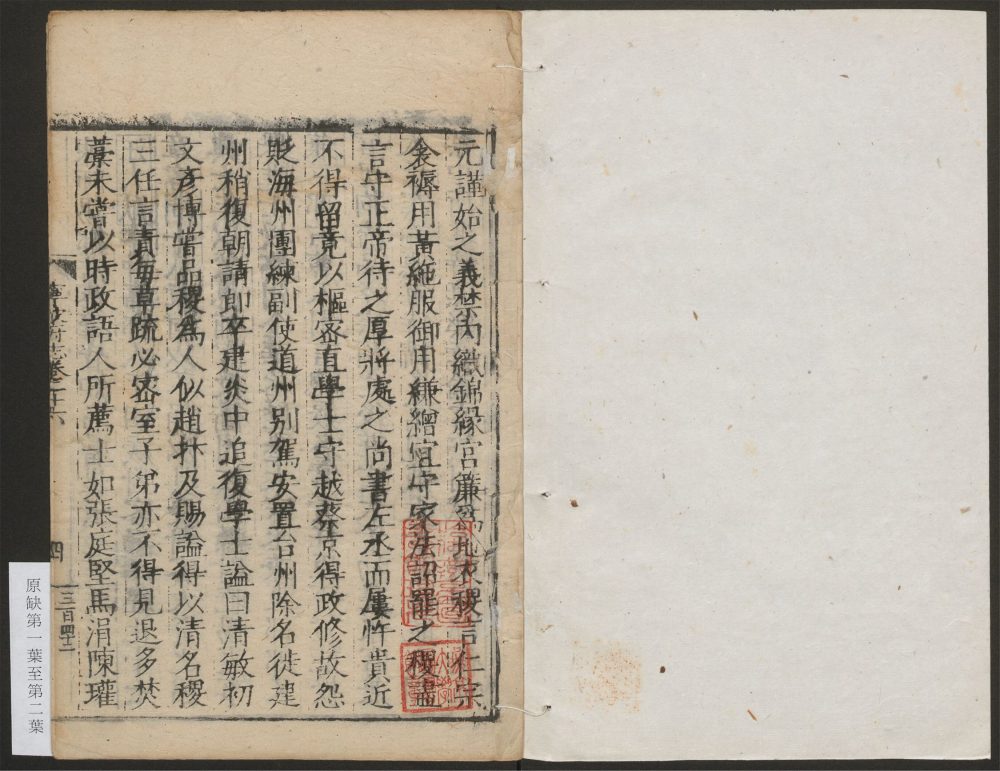 元謹始之義禁內織錦緣宮簾爲地衣稷言仁宗
衾褥用黃絁服御用縑繒宜守家法詔罷之稷盡
言守正帝待之厚將處之尚書左丞而屢忤貴近
不得留竟以樞密直學士守越蔡京得政修故怨
貶海州團練副使道州別駕安置台州除名徙建
州稍復朝請郎卒建炎中追復學士謚曰清敏初
文彥博嘗品稷爲人似趙抃及賜謚得以清名稷
三任言責每草疏必密室子弟亦不得見退多焚
藁未嘗以時政語人所薦士如張庭堅馬涓陳瓘
志卷二十六
四
三百四十二
原缺第一葉至第二葉